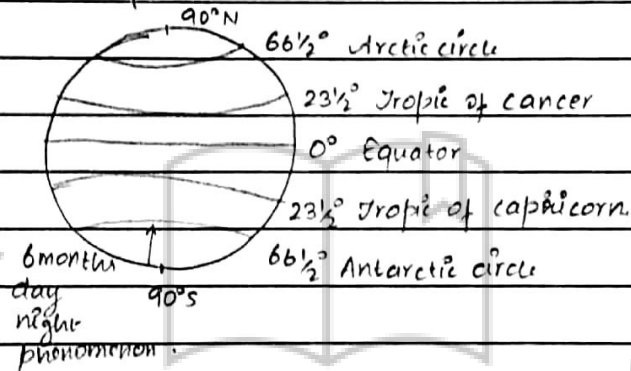 90°N
66½° Arctic circle
23½° Tropic of cancer
0° Equator
23½° Tropic of capricorn
66½° Antarctic circle
6 months
90°S
day
night
phenomenon.